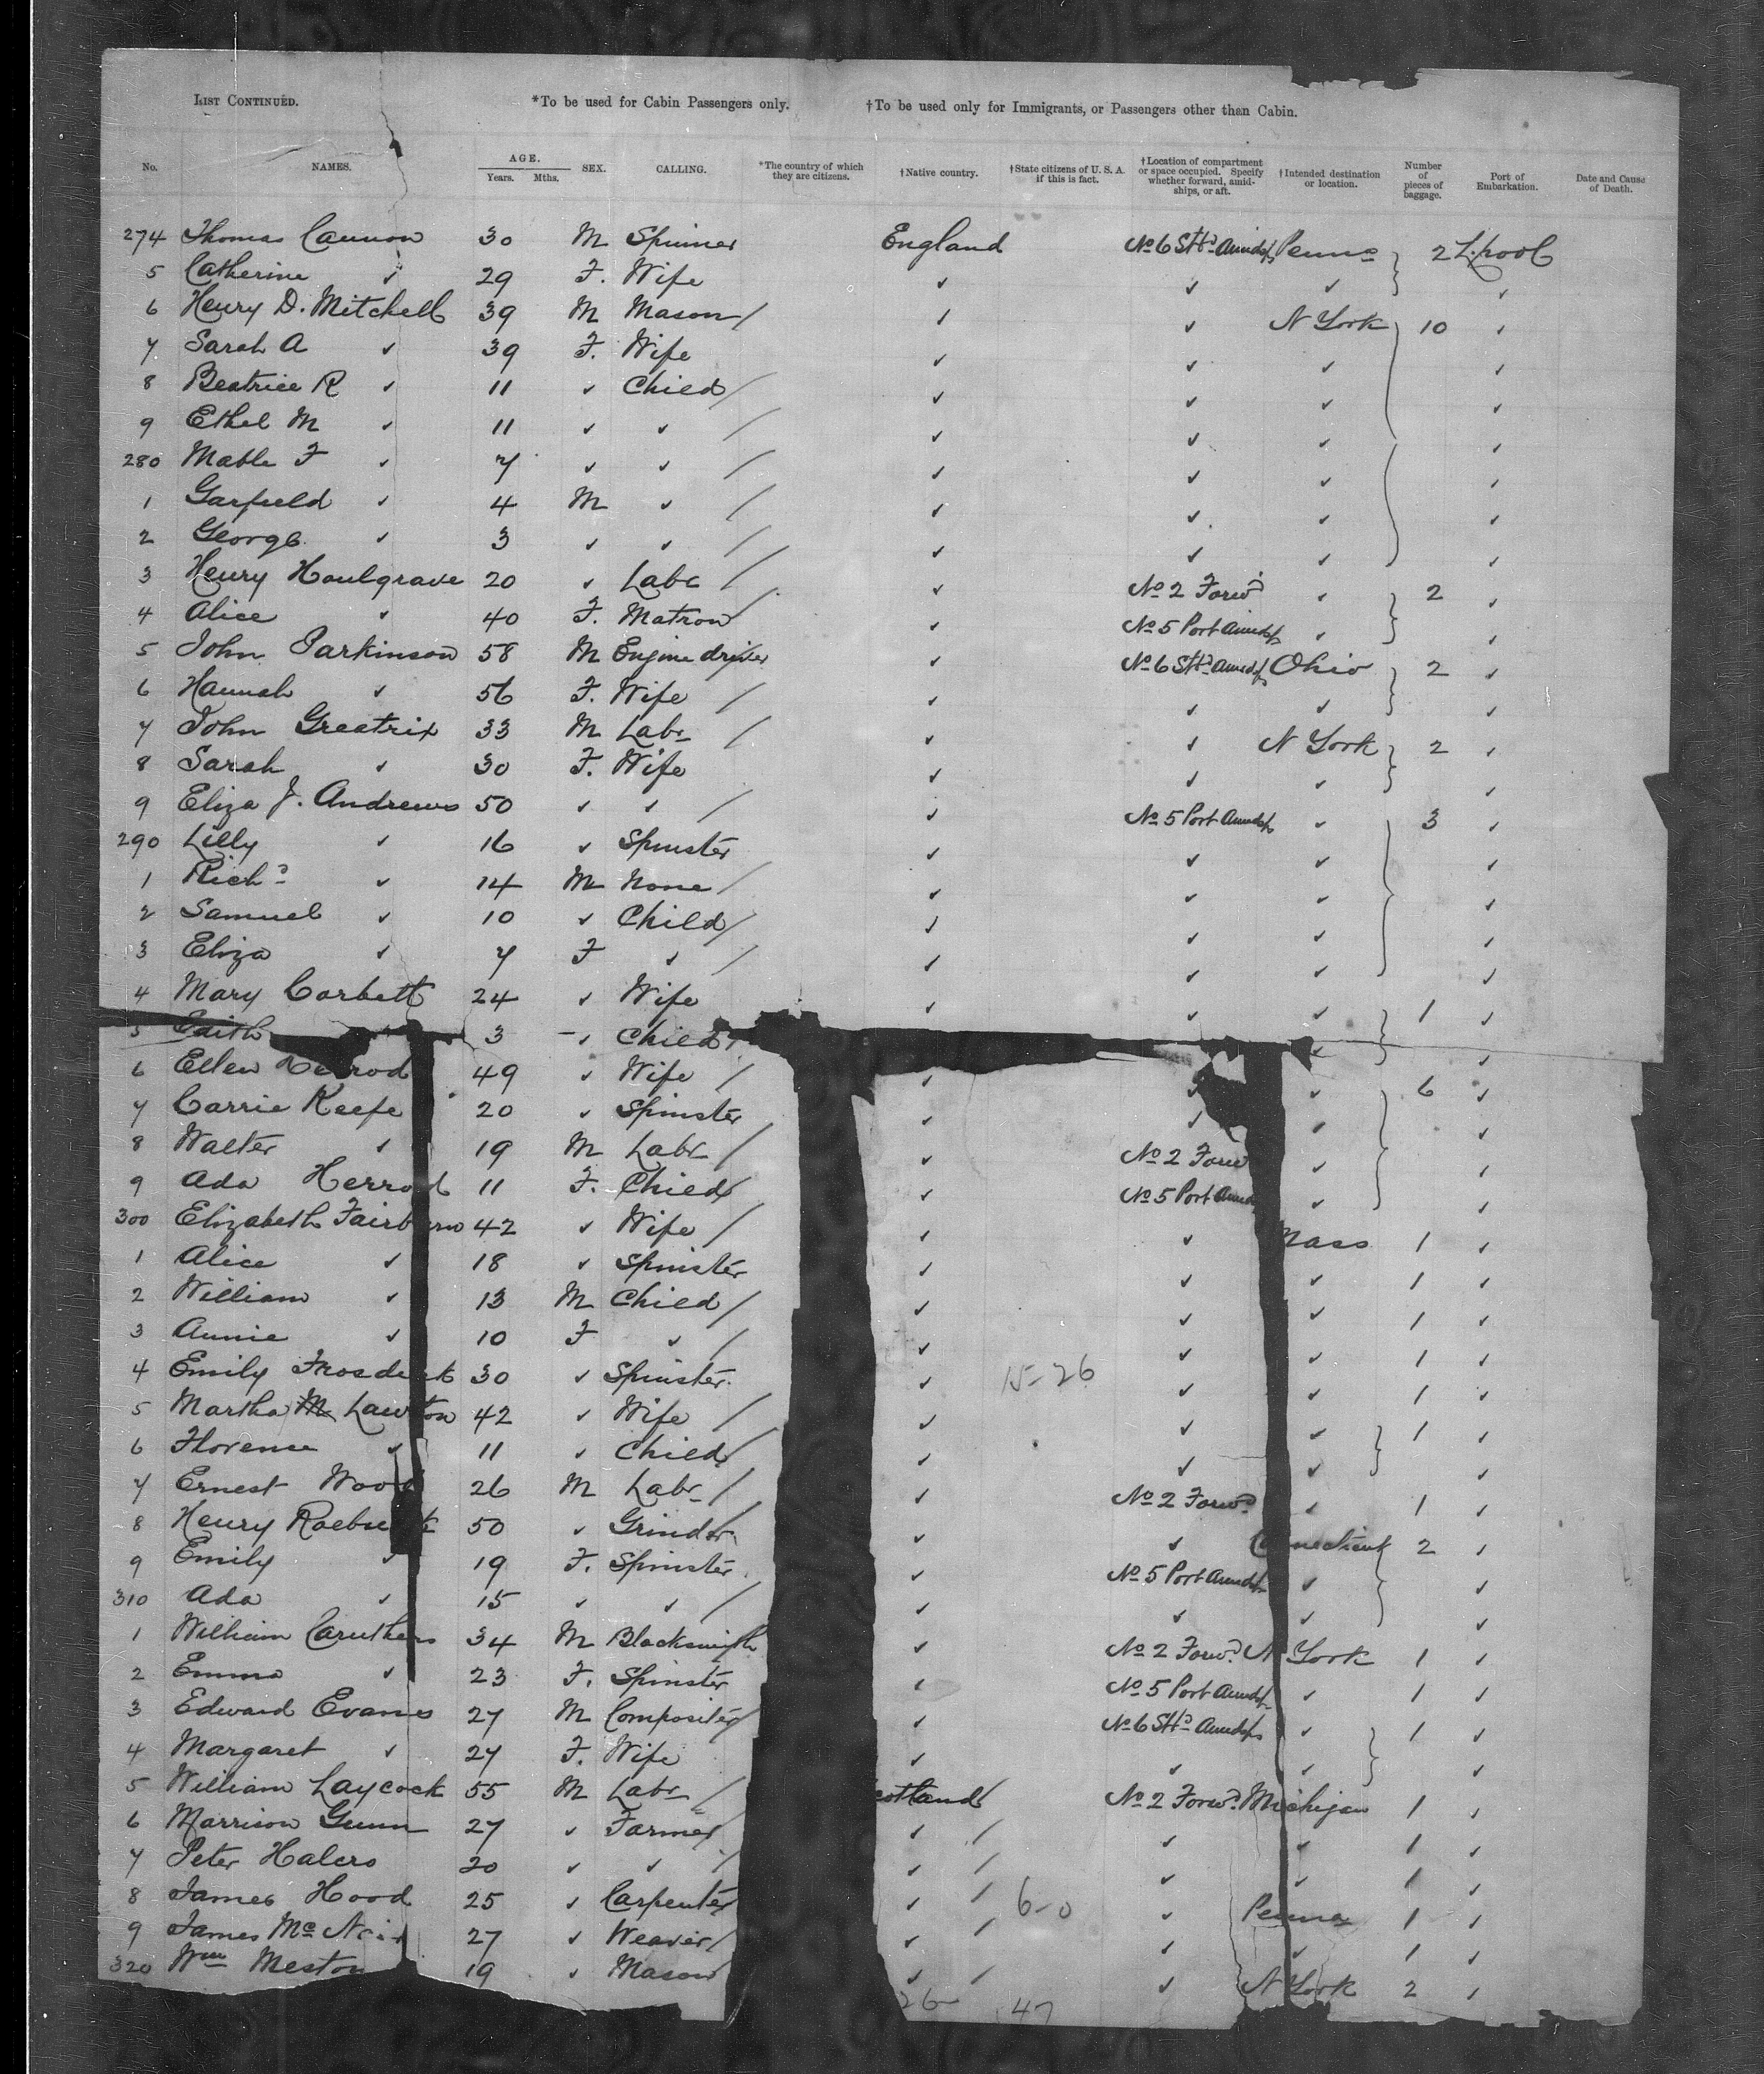 LIST CONTINUED. *To be used for Cabin Passengers only. †To be used only for Immigrants, or Passengers other than Cabin.
No. NAMES. AGE. Years. Mths. SEX. CALLING. *The country of which they are citizens. †Native country. †State citizens of U. S. A. if this is fact. †Location of compartment or space occupied. Specify whether forward, amidships, or aft. †Intended destination or location. Number of pieces of baggage. Port of Embarkation. Date and Cause of Death.
274 Thomas Cannon 30 M Spinner England No 6 Stbd Amidsps Penna 2 L.pool
5 Catherine ✓ 29 F. Wife ✓ ✓ ✓ ✓
6 Henry D. Mitchell 39 M Mason / ✓ ✓ N York 10 ✓
7 Sarah A ✓ 39 F. Wife ✓ ✓ ✓ ✓
8 Beatrice R ✓ 11 ✓ Child / ✓ ✓ ✓ ✓
9 Ethel M ✓ 11 ✓ ✓ / ✓ ✓ ✓ ✓
280 Mable F ✓ 7 ✓ ✓ / ✓ ✓ ✓ ✓
1 Garfield ✓ 4 M ✓ / ✓ ✓ ✓ ✓
2 George ✓ 3 ✓ ✓ / ✓ ✓ ✓ ✓
3 Henry Houlgrave 20 ✓ Labr / ✓ No 2 Forwd ✓ 2 ✓
4 Alice ✓ 40 F. Matron / ✓ No 5 Port Amidsps ✓ ✓
5 John Parkinson 58 M Engine driver ✓ No 6 Stbd Amidsps Ohio 2 ✓
6 Hannah ✓ 56 F. Wife / ✓ ✓ ✓ ✓
7 John Greatrix 33 M Labr / ✓ ✓ N York 2 ✓
8 Sarah ✓ 30 F. Wife ✓ ✓ ✓ ✓
9 Eliza J. Andrews 50 ✓ ✓ / ✓ No 5 Port Amidsps ✓ 3 ✓
290 Lilly ✓ 16 ✓ Spinster ✓ ✓ ✓ ✓
1 Richd ✓ 14 M None / ✓ ✓ ✓ ✓
2 Samuel ✓ 10 ✓ Child / ✓ ✓ ✓ ✓
3 Eliza ✓ 7 F ✓ / ✓ ✓ ✓ ✓
4 Mary Corbett 24 ✓ Wife ✓ ✓ ✓ 1 ✓
5 Edith 3 ✓ Child / ✓ ✓
6 Ellen 49 ✓ Wife / ✓ ✓ ✓ 6 ✓
7 Carrie Keefe 20 ✓ Spinster ✓ ✓ ✓ ✓
8 Walter ✓ 19 M Labr / ✓ No 2 Forw ✓ ✓
9 Ada Herrod 11 F. Child / ✓ No 5 Port ✓ ✓
300 Elizabeth Fairbairn 42 ✓ Wife / ✓ ✓ Mass 1 ✓
1 Alice ✓ 18 ✓ Spinster ✓ ✓ ✓ 1 ✓
2 William ✓ 13 M Child / ✓ ✓ ✓ 1 ✓
3 Annie ✓ 10 F ✓ / ✓ ✓ ✓ 1 ✓
4 Emily 30 ✓ Spinster ✓ 15-26 ✓ ✓ 1 ✓
5 Martha M Lawton 42 ✓ Wife / ✓ ✓ ✓ 1 ✓
6 Florence ✓ 11 ✓ Child / ✓ ✓ ✓ ✓
7 Ernest Wood 26 M Labr / ✓ No 2 Forwd ✓ 1 ✓
8 Henry Roebuck 50 ✓ Grinder ✓ ✓ Connecticut 2 ✓
9 Emily ✓ 19 F. Spinster ✓ No 5 Port Amidsps ✓ ✓
310 Ada ✓ 15 ✓ ✓ / ✓ ✓ ✓ ✓
1 William Caruthers 34 M Blacksmith ✓ No 2 Forwd N York 1 ✓
2 Emma ✓ 23 F. Spinster ✓ No 5 Port Amidsps ✓ 1 ✓
3 Edward Evans 27 M Compositer / ✓ No 6 Stbd Amidsps ✓ 1 ✓
4 Margaret ✓ 27 F. Wife ✓ ✓ ✓ ✓
5 William Laycock 55 M Labr / Scotland / No 2 Forwd Michigan 1 ✓
6 Marrison Gunn 27 ✓ Farmer / ✓ / ✓ ✓ 1 ✓
7 Peter Halcro 20 ✓ ✓ / ✓ / ✓ ✓ 1 ✓
8 James Hood 25 ✓ Carpenter ✓ / 6-0 ✓ Penna 1 ✓
9 James Mc Nair 27 ✓ Weaver / ✓ / ✓ ✓ 1 ✓
320 Wm Meston 19 ✓ Mason ✓ / ✓ N York 2 ✓
26 47